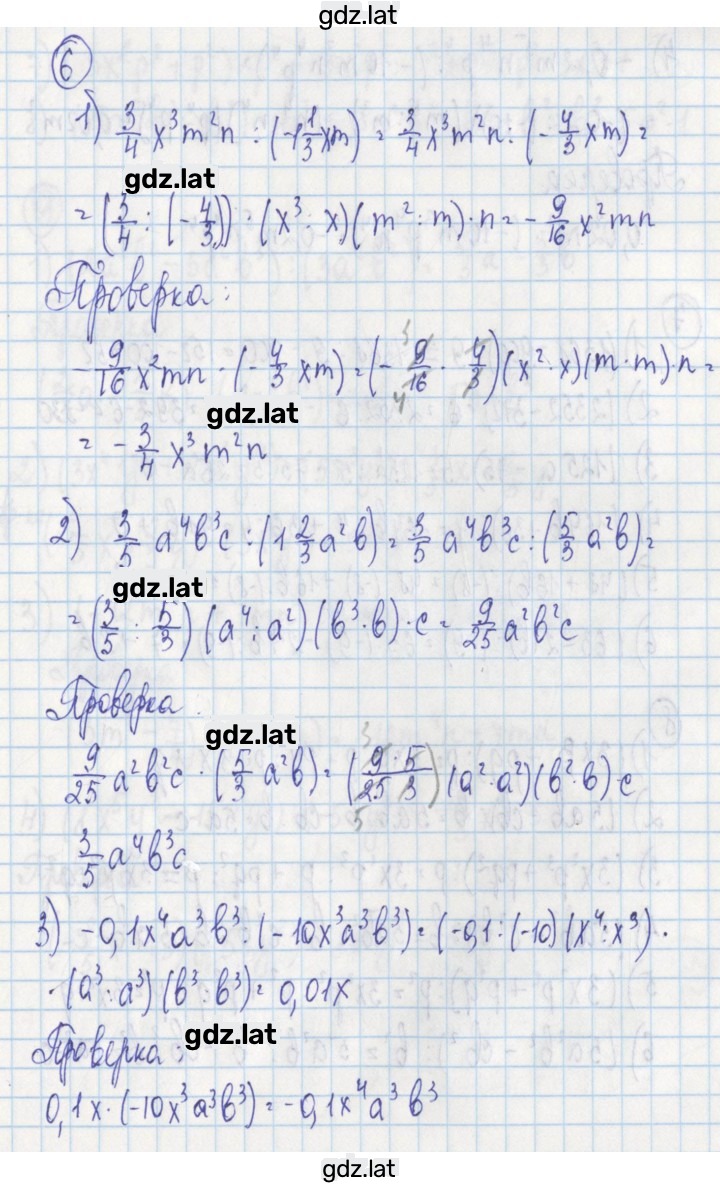 gdz.lat
6
1) 3/4 x³m²n : (-1 1/3 xm) = 3/4 x³m²n : (-4/3 xm) =
gdz.lat
= (3/4 : (-4/3)) · (x³ : x)(m² : m) · n = -9/16 x²mn
Проверка:
-9/16 x²mn · (-4/3 xm) = (-9/16 · 4/3)(x² · x)(m · m) · n =
3 4
gdz.lat
= -3/4 x³m²n
2) 3/5 a⁴b³c : (1 2/3 a²b) = 3/5 a⁴b³c : (5/3 a²b) =
gdz.lat
= (3/5 : 5/3)(a⁴ : a²)(b³ · b) · c = 9/25 a²b²c
Проверка
gdz.lat
9/25 a²b²c · (5/3 a²b) = (9 · 5/25 3)(a² · a²)(b² · b) · c
3 5
3/5 a⁴b³c
3) -0,1x⁴a³b³ : (-10x³a³b³) = (-0,1 : (-10)(x⁴ : x³) ·
· (a³ : a³)(b³ : b³) = 0,01x
gdz.lat
Проверка:
0,1x · (-10x³a³b³) = -0,1x⁴a³b³
gdz.lat